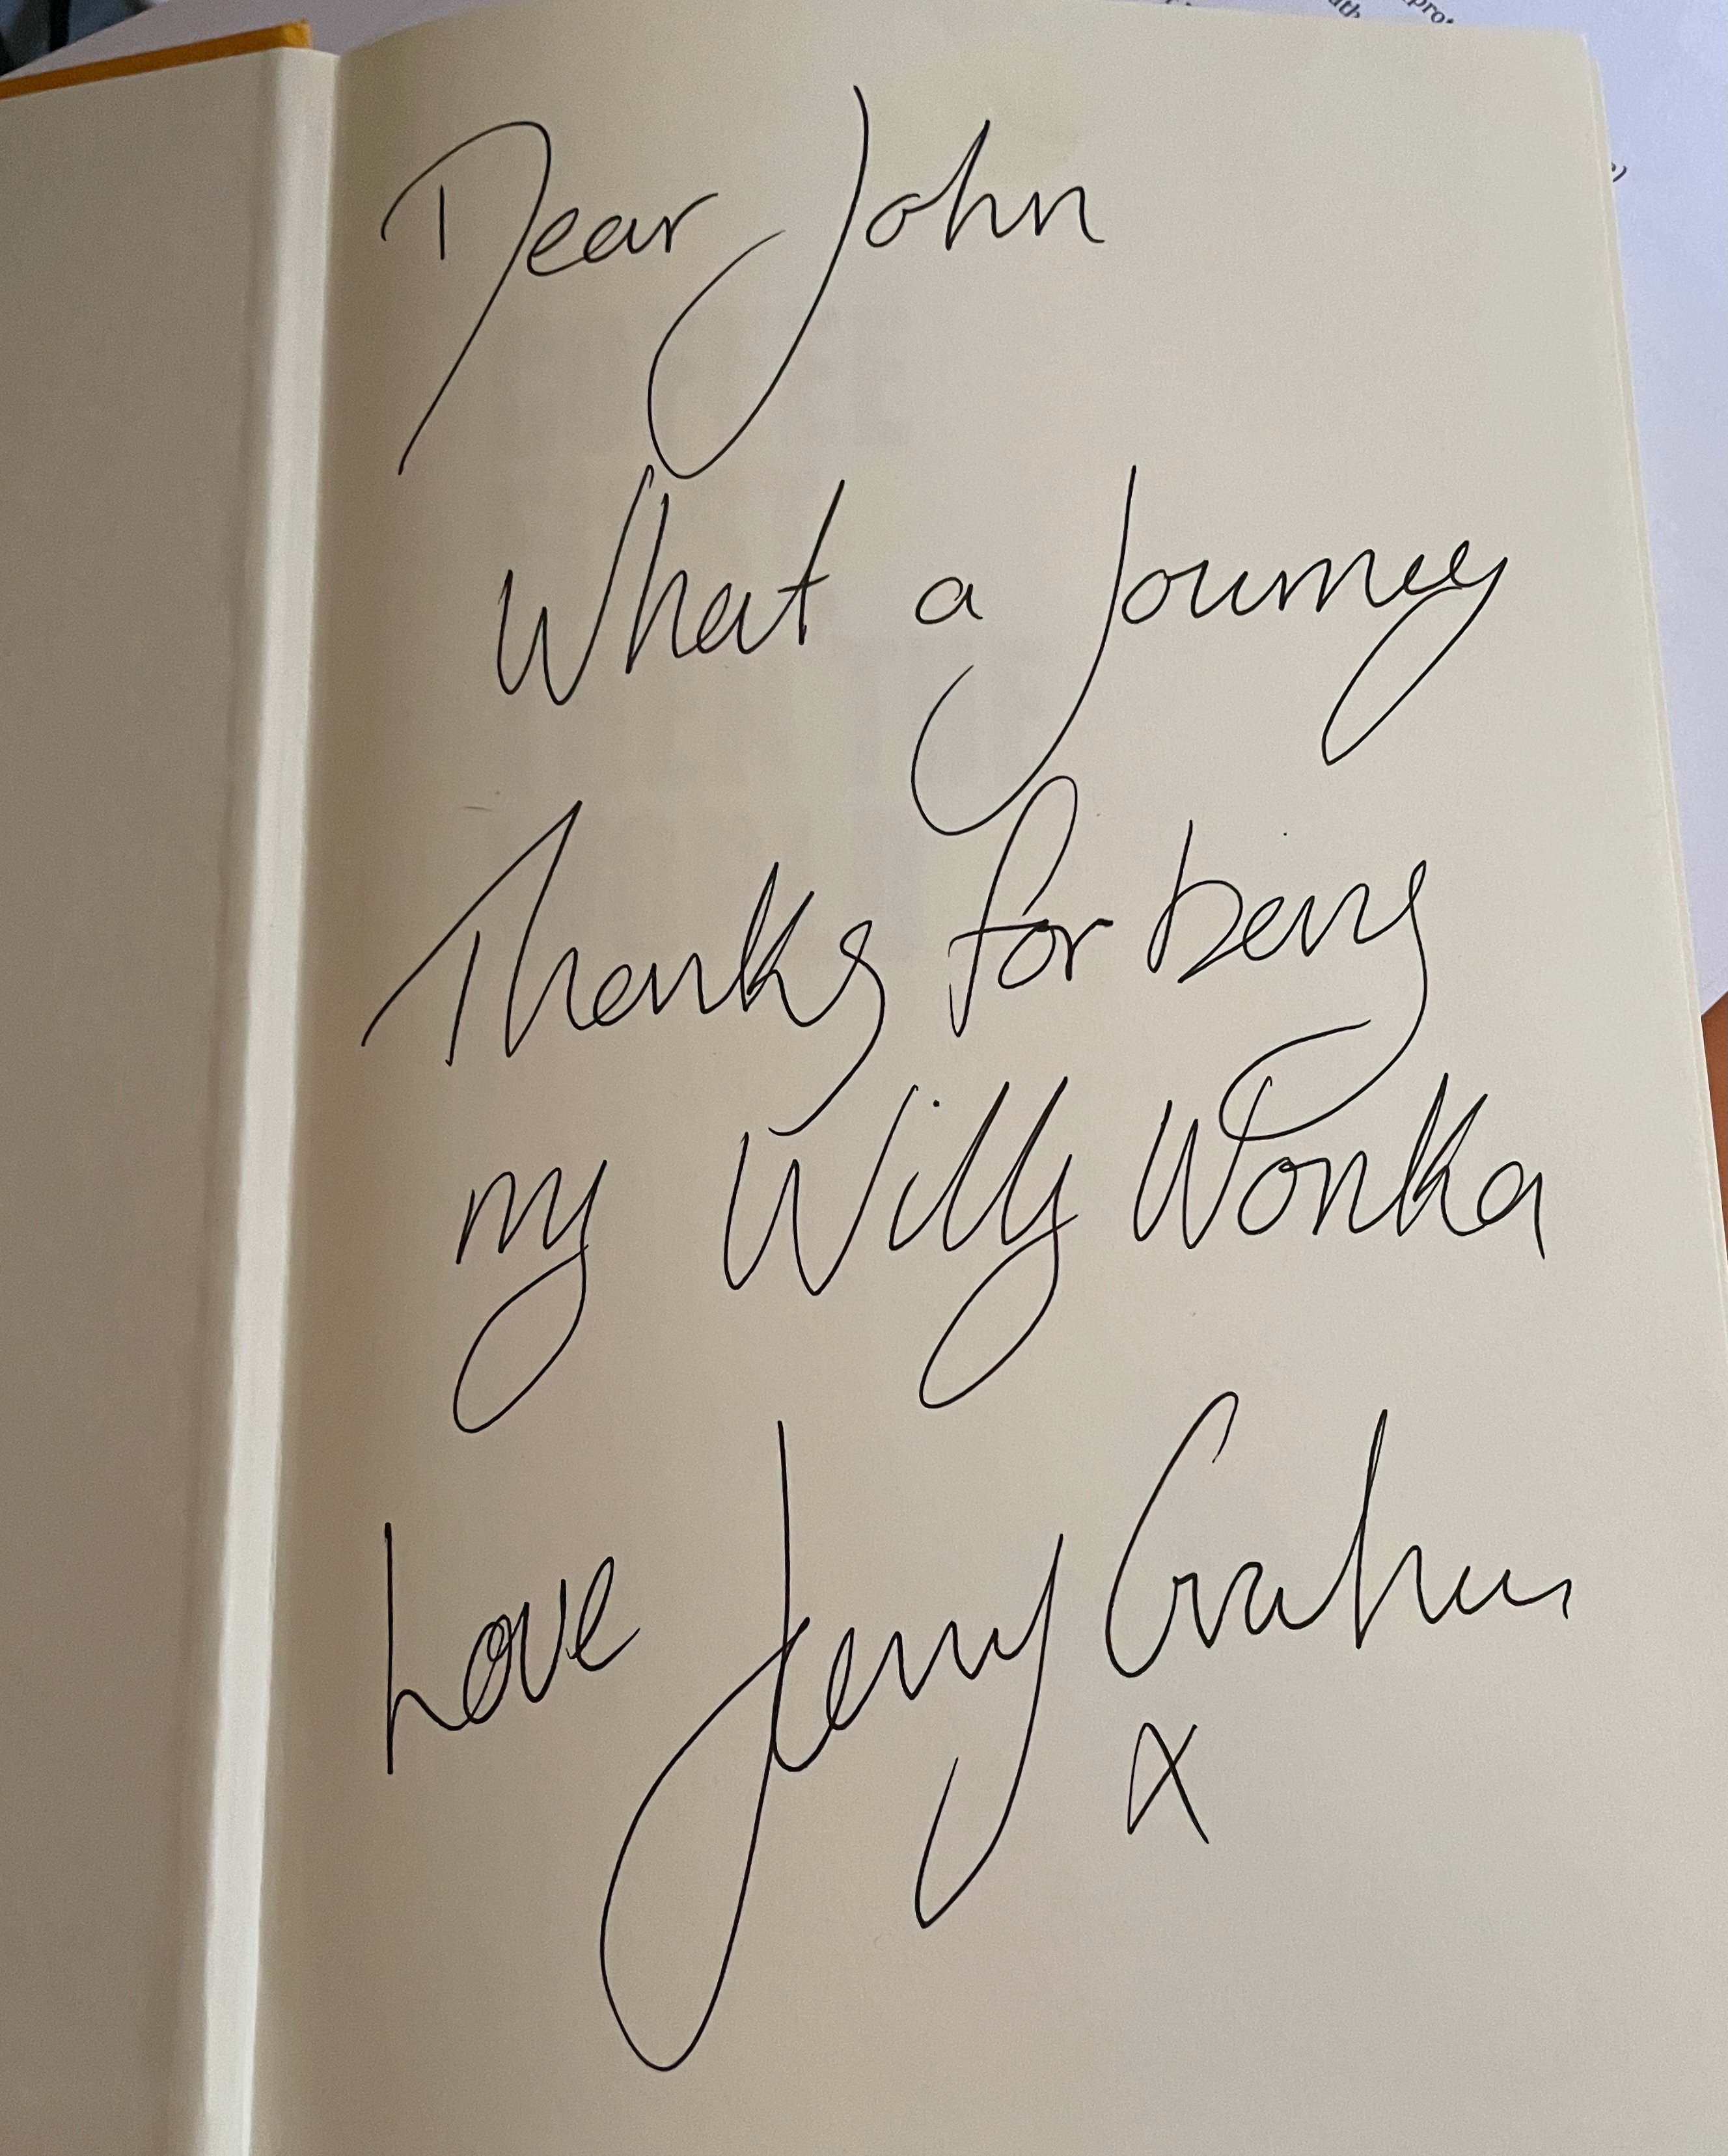 Dear John
What a Journey
Thanks for being
my Willy Wonka
Love Jenny Graham
x